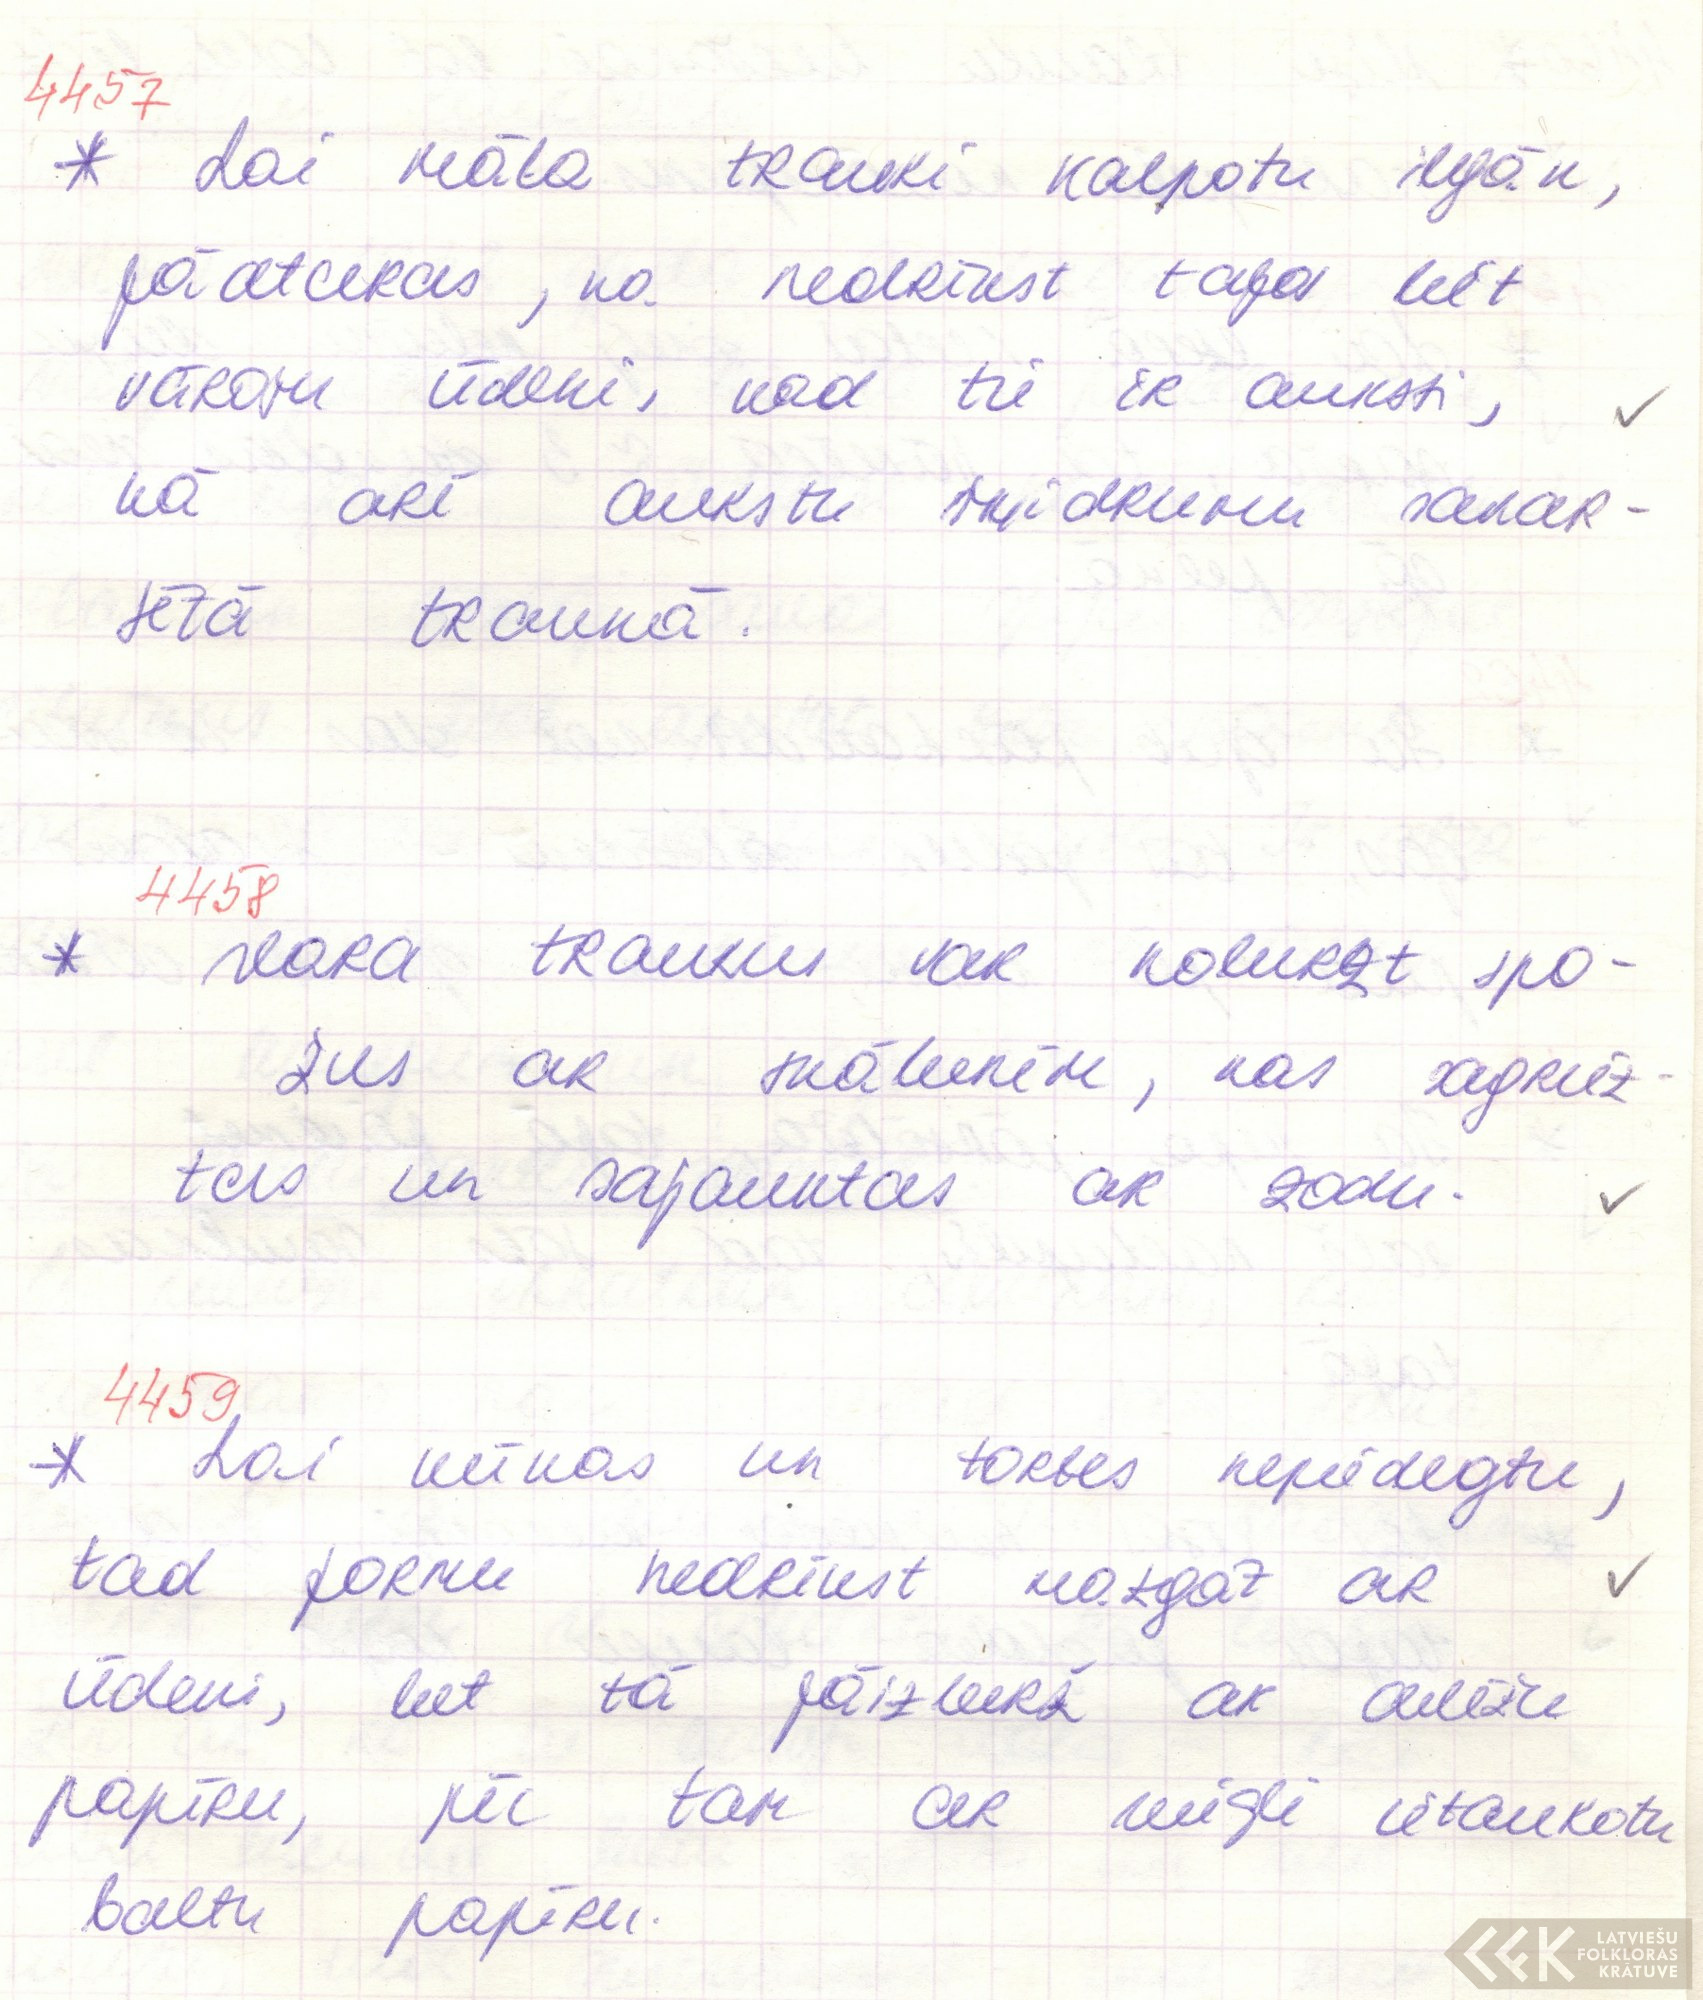 4457
* Lai māla trauki kalpotu ilgāk,
jāatceras, ka nedrīkst tajos liet
vārošu ūdeni, kad tie ir auksti,
kā arī aukstu šķidrumu sakar-
sētā traukā.
4458
* Vara traukus var noberzt spo-
žus ar skābeņiem, kas sagriez-
tas un sajauktas ar sodu.
4459
* Lai kūkas un tortes nepiedegtu,
tad formu nedrīkst mazgāt ar
ūdeni, bet tā jāizberž ar avīžu
papīru, pēc tam ar viegli ietaukotu
baltu papīru.
LATVIEŠU
FOLKLORAS
KRĀTUVE